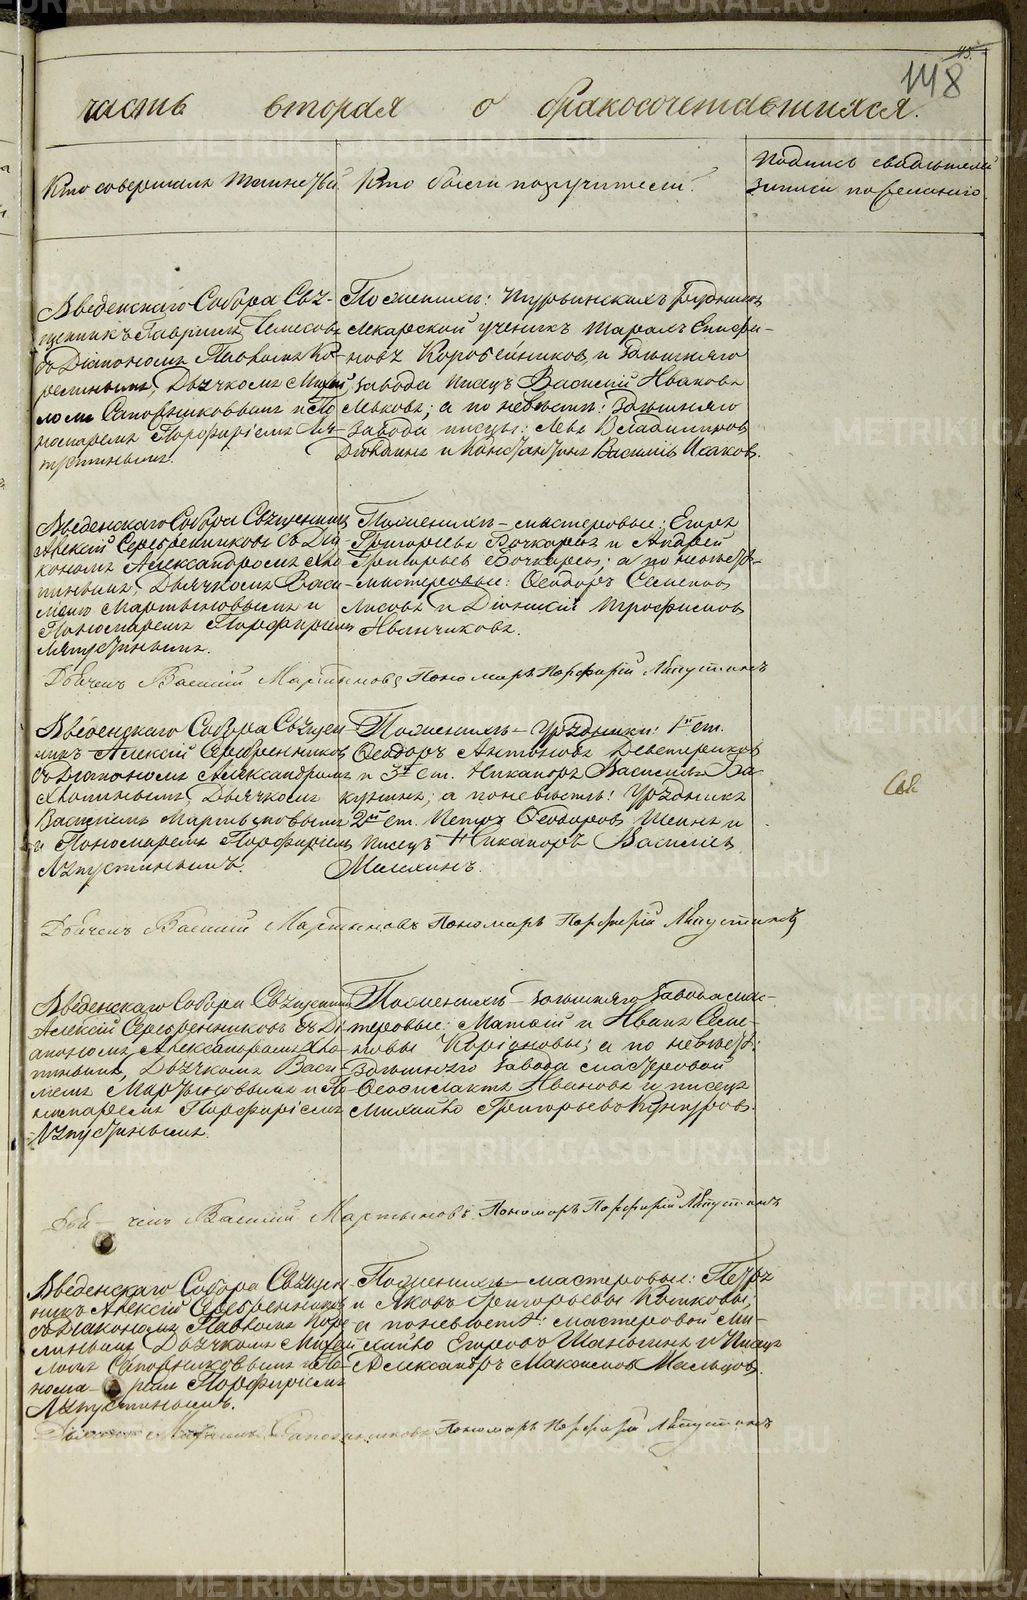 45.
148
часть вторая о бракосочетавшихся.
Кто совершалъ таинство
Кто были поручители.
Подпись свидѣтелей
записи по желанію.
Введенскаго Собора Свя-
щенникъ Гавріилъ
съ Діакономъ Павломъ Ко-
релинымъ, Дьячкомъ Михаи
ломъ Сапожниковымъ и По
номаремъ Порфиріемъ Ля-
пустинымъ.
По женихѣ: Турьинскихъ Рудник
Лекарской ученикъ Тарахъ Епифа-
новъ Коробейниковъ и здѣшняго
завода писецъ Василій Ивановъ
а по невѣстѣ: здѣшняго
завода писцы: Левъ Владиміровъ
и Константинъ Васильевъ Исаковъ.
Введенскаго Собора Священник
Алексій Серебренниковъ съ Діа
кономъ Александромъ Хло
пинымъ, Дьячкомъ Васи-
ліемъ Мартыновымъ и
Пономаремъ Порфиріемъ
Ляпустинымъ.
По женихѣ – мастеровые: Егоръ
Григорьевъ Бочкаревъ и Андрей
Григорьевъ Бочкаревъ; а по невѣстѣ –
мастеровые: Ѳеодоръ Семеновъ
Лисовъ и Діонисій Трофимовъ
Иванчиковъ.
Дьячекъ Василій Мартыновъ Пономарь Порфирій Ляпустинъ
Введенскаго Собора Священ
никъ Алексій Серебренниковъ
съ Діакономъ Александромъ
Хлопинымъ, Дьячкомъ
Василіемъ Мартыновымъ
и Пономаремъ Порфиріемъ
Ляпустинымъ.
По женихѣ – Урядники: 1й ст.
Ѳеодоръ Антоновъ Девятериковъ
и 3й ст. Никаноръ Васильевъ Ва
а по невѣстѣ: Урядникъ
2й ст. Петръ Ѳеодоровъ Шеинъ и
писецъ Никаноръ Васильевъ
Дьячекъ Василій Мартыновъ Пономарь Порфирій Ляпустинъ
Введенскаго Собора Священник
Алексій Серебренниковъ съ Ді-
акономъ Александромъ Хло-
пинымъ, Дьячкомъ Васи-
ліемъ Мартыновымъ и По-
номаремъ Порфиріемъ
Ляпустинымъ.
По женихѣ – здѣшняго завода мас-
теровые: Матвій и Иванъ Семе-
новы а по невѣстѣ:
здѣшняго завода мастеровой
Ѳеофилактъ Ивановъ и писецъ
Михайло Григорьевъ Кунгуровъ.
Дья – чекъ Василій Мартыновъ Пономарь Порфирій Ляпустинъ
Введенскаго Собора Священ-
никъ Алексій Серебренниковъ
съ Діакономъ Павломъ Коре
линымъ Дьячкомъ Михаи
ломъ Сапожниковымъ и По-
нома- ремъ Порфиріемъ
Ляпустинымъ.
По женихѣ – мастеровые: Петръ
и Яковъ Григорьевы
а по невѣстѣ: мастеровой Ми-
хайло Егоровъ Шаньгинъ и Писецъ
Александръ Максимовъ Мальцовъ.
Дьячекъ Михаилъ Сапожниковъ Пономарь Порфирій Ляпустинъ